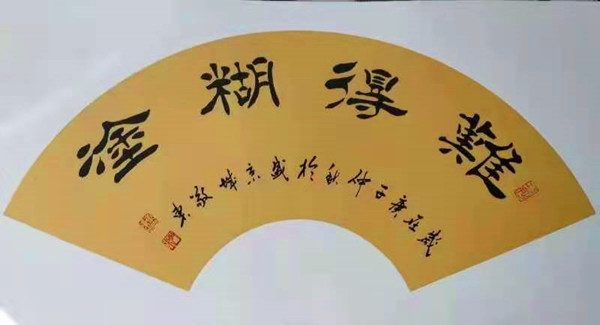 難得糊塗
歲在庚子仲秋於盛京城敬書